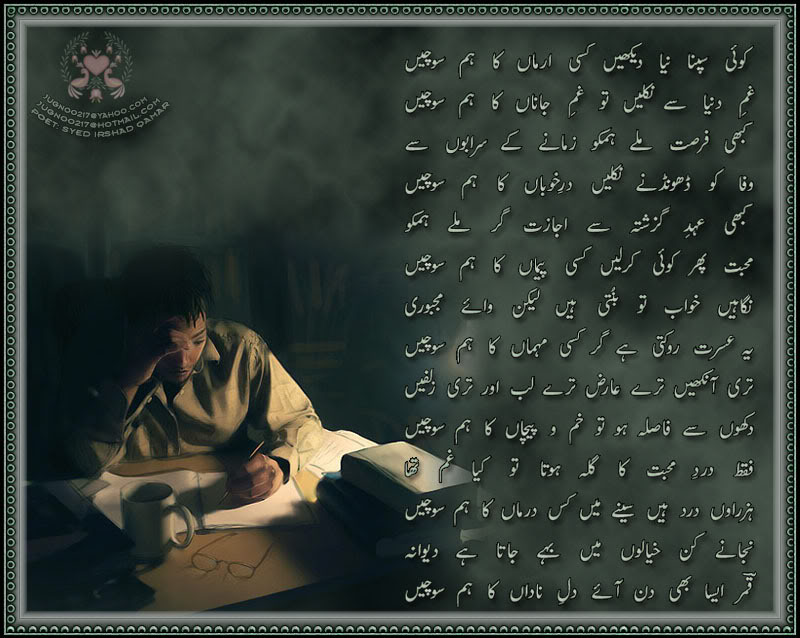 JUGNOO217@YAHOO.COM
JUGNOO217@HOTMAIL.COM
POET: SYED IRSHAD QAMAR
کوئی سپنا نیا دیکھیں کسی ارماں کا ہم سوچیں
غمِ دنیا سے نکلیں تو غمِ جاناں کا ہم سوچیں
کبھی فرصت ملے ہمکو زمانے کے سرابوں سے
وفا کو ڈھونڈنے نکلیں درِخوباں کا ہم سوچیں
کبھی عہدِ گزشتہ سے اجازت گر ملے ہمکو
محبت پھر کوئی کرلیں کسی پیماں کا ہم سوچیں
نگاہیں خواب تو بُنتی ہیں لیکن وائے مجبوری
یہ عسرت روکتی ہے گر کسی مہماں کا ہم سوچیں
تری آنکھیں ترے عارض ترے لب اور تری زلفیں
دکھوں سے فاصلہ ہو تو خم و پیچاں کا ہم سوچیں
فقط دردِ محبت کا گلہ ہوتا تو کیا غم تھا
ہزراوں درد ہیں سینے میں کس درماں کا ہم سوچیں
نجانے کن خیالوں میں بہے جاتا ہے دیوانہ
قمؔر ایسا بھی دن آئے دلِ ناداں کا ہم سوچیں